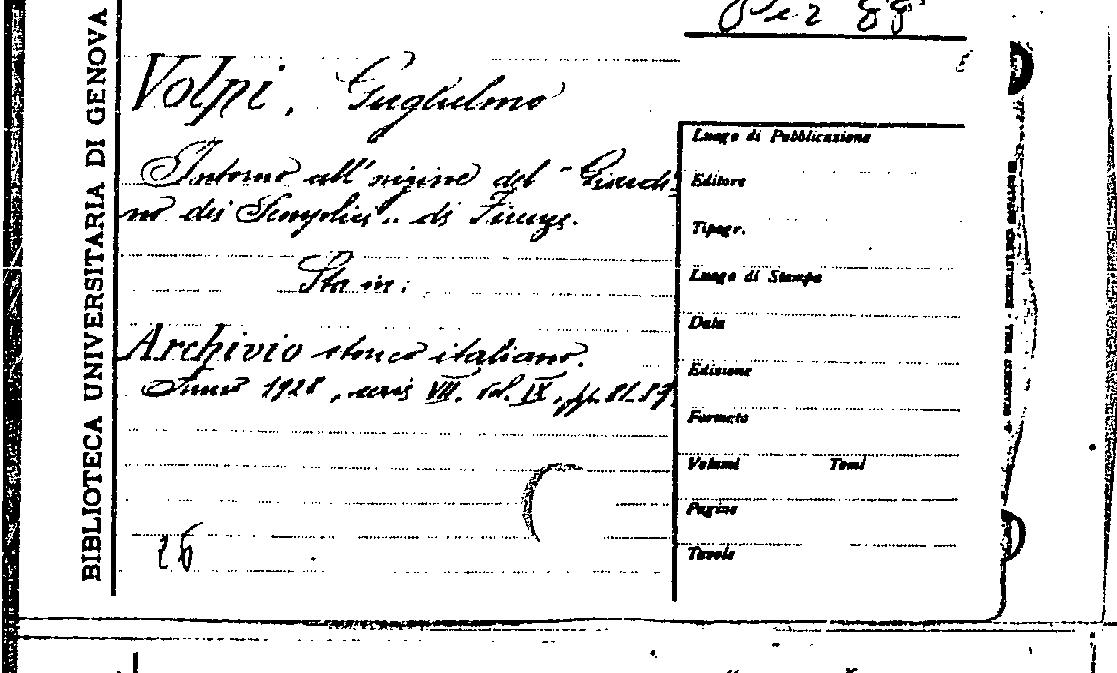 Per 88
BIBLIOTECA UNIVERSITARIA DI GENOVA
Volpi, Guglielmo
Intorno all'origine del "Giardi-
no dei Semplici" di Firenze.
Sta in:
Archivio storico italiano.
Anno 1928, serie VII. Vol. IX, pp. 81-89
26
Luogo di Pubblicazione
Editore
Tipogr.
Luogo di Stampa
Data
Edizione
Formato
Volumi Tomi
Pagine
Tavole